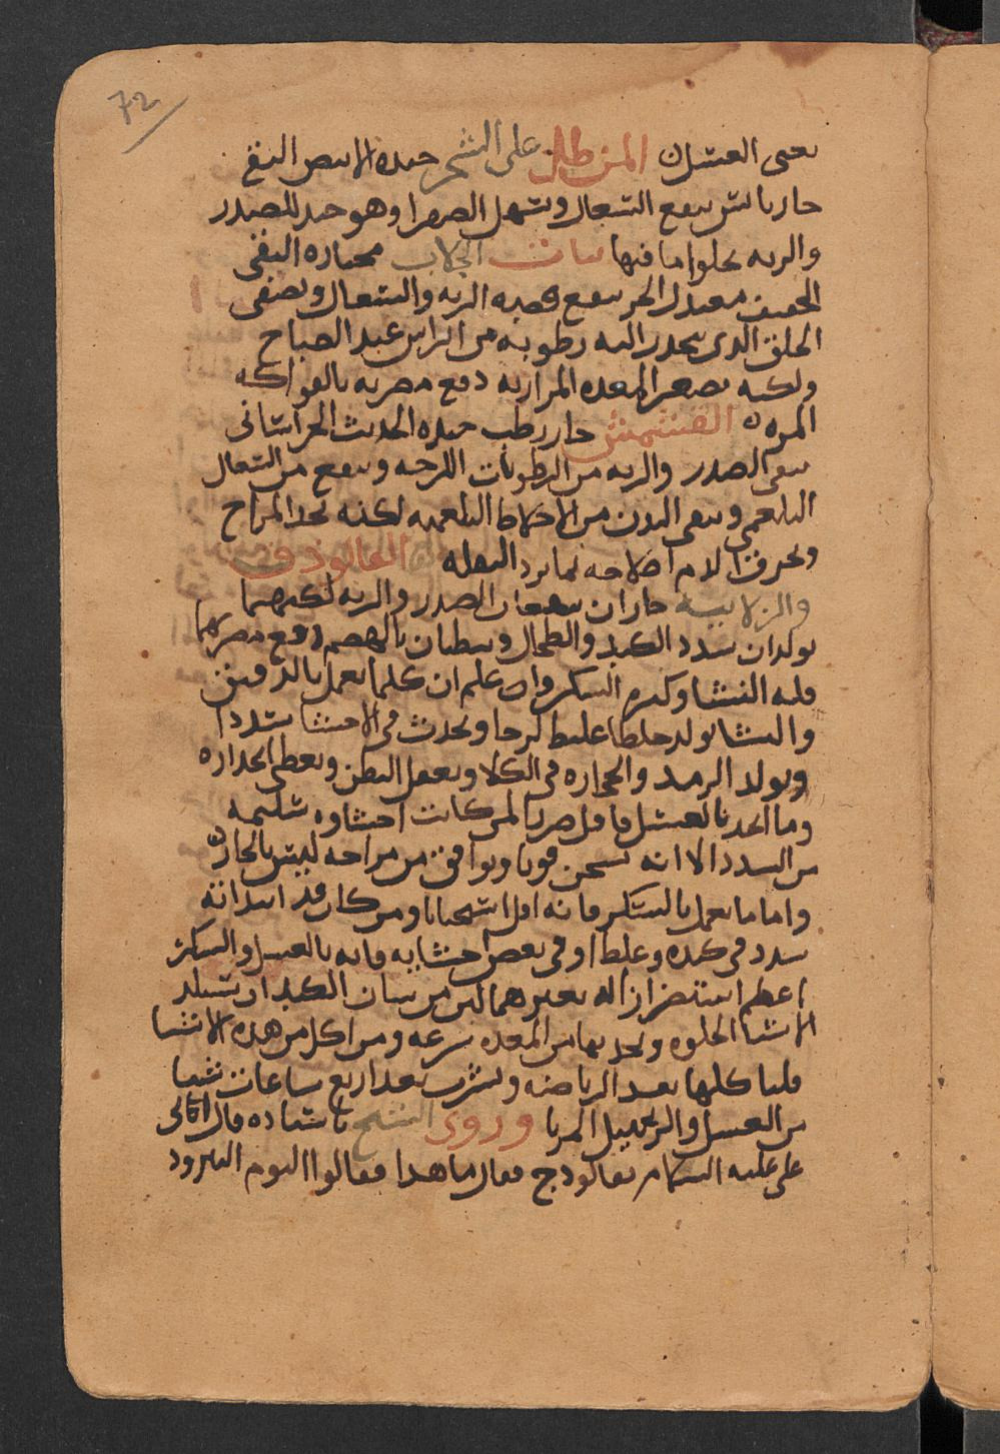 72
نحتى العسل ن المن طل على الشجر جيده الابيض النقي
حار يابس ينفع السعال ويسهل الصفرا وهو جيد للصدر
والريه يجلوا ما فيها نبات الجلاب مختاره النقي
الخفيف معتدل الحر ينفع قصبة الريه والسعال ويصفي
الحلق الذي ينحدر اليه رطوبه من الراس عند الصباح
ولكنه يضر المعده المراريه دفع مضرته بالفواكه
المزه ن القشمش حار رطب جيده الحديث الخراساني
ينقي الصدر والريه من الرطوبات اللزجه وينفع من السعال
البلغمي وينقي البدن من الاخلاط البلغميه لكنه يحد المزاج
ويحرق الدم اصلاحه بما برد البقله الفالوذق
والزلابيه حاران ينفعان الصدر والريه لكنهما
يولدان سدد الكبد والطحال ويبطيان بالهضم دفع مضرتهما
قله النشا وكثره السكر واعلم ان كلما يعمل بالدقيق
والنشا يولد خلطا غليظا لزجا ويحدث في الاحشا سددا
ويولد الرمد والحجاره في الكلا ويعقل البطن ويعطي انحداره
وما اتخذ بالعسل فاقل ضررا لمن كانت احشاوه سليمه
من السدد الا انه يسخن قويا ويوافق من مزاجه ليس بالحار ن
واما ما يعمل بالسكر فانه اقل اسخانا ومن كان قد ابتدا به
سدد في كبده وغلظ او في بعض احشايه فانه بالعسل والسكر
اعظم استضرارا له بغيرهما لان من شان الكبد ان تستلذ
الاشيا الحلوه وتجذبها من المعده بسرعه ومن اكل من هذه الاشيا
فلياكلها بعد الرياضه ويشرب بعد اربع ساعات شيا
من العسل والزنجبيل المربا وروى الشيخ باسناده قال اتا لى
على عليه السلام بفالوذج فقال ما هذا فقالوا اليوم النيروز